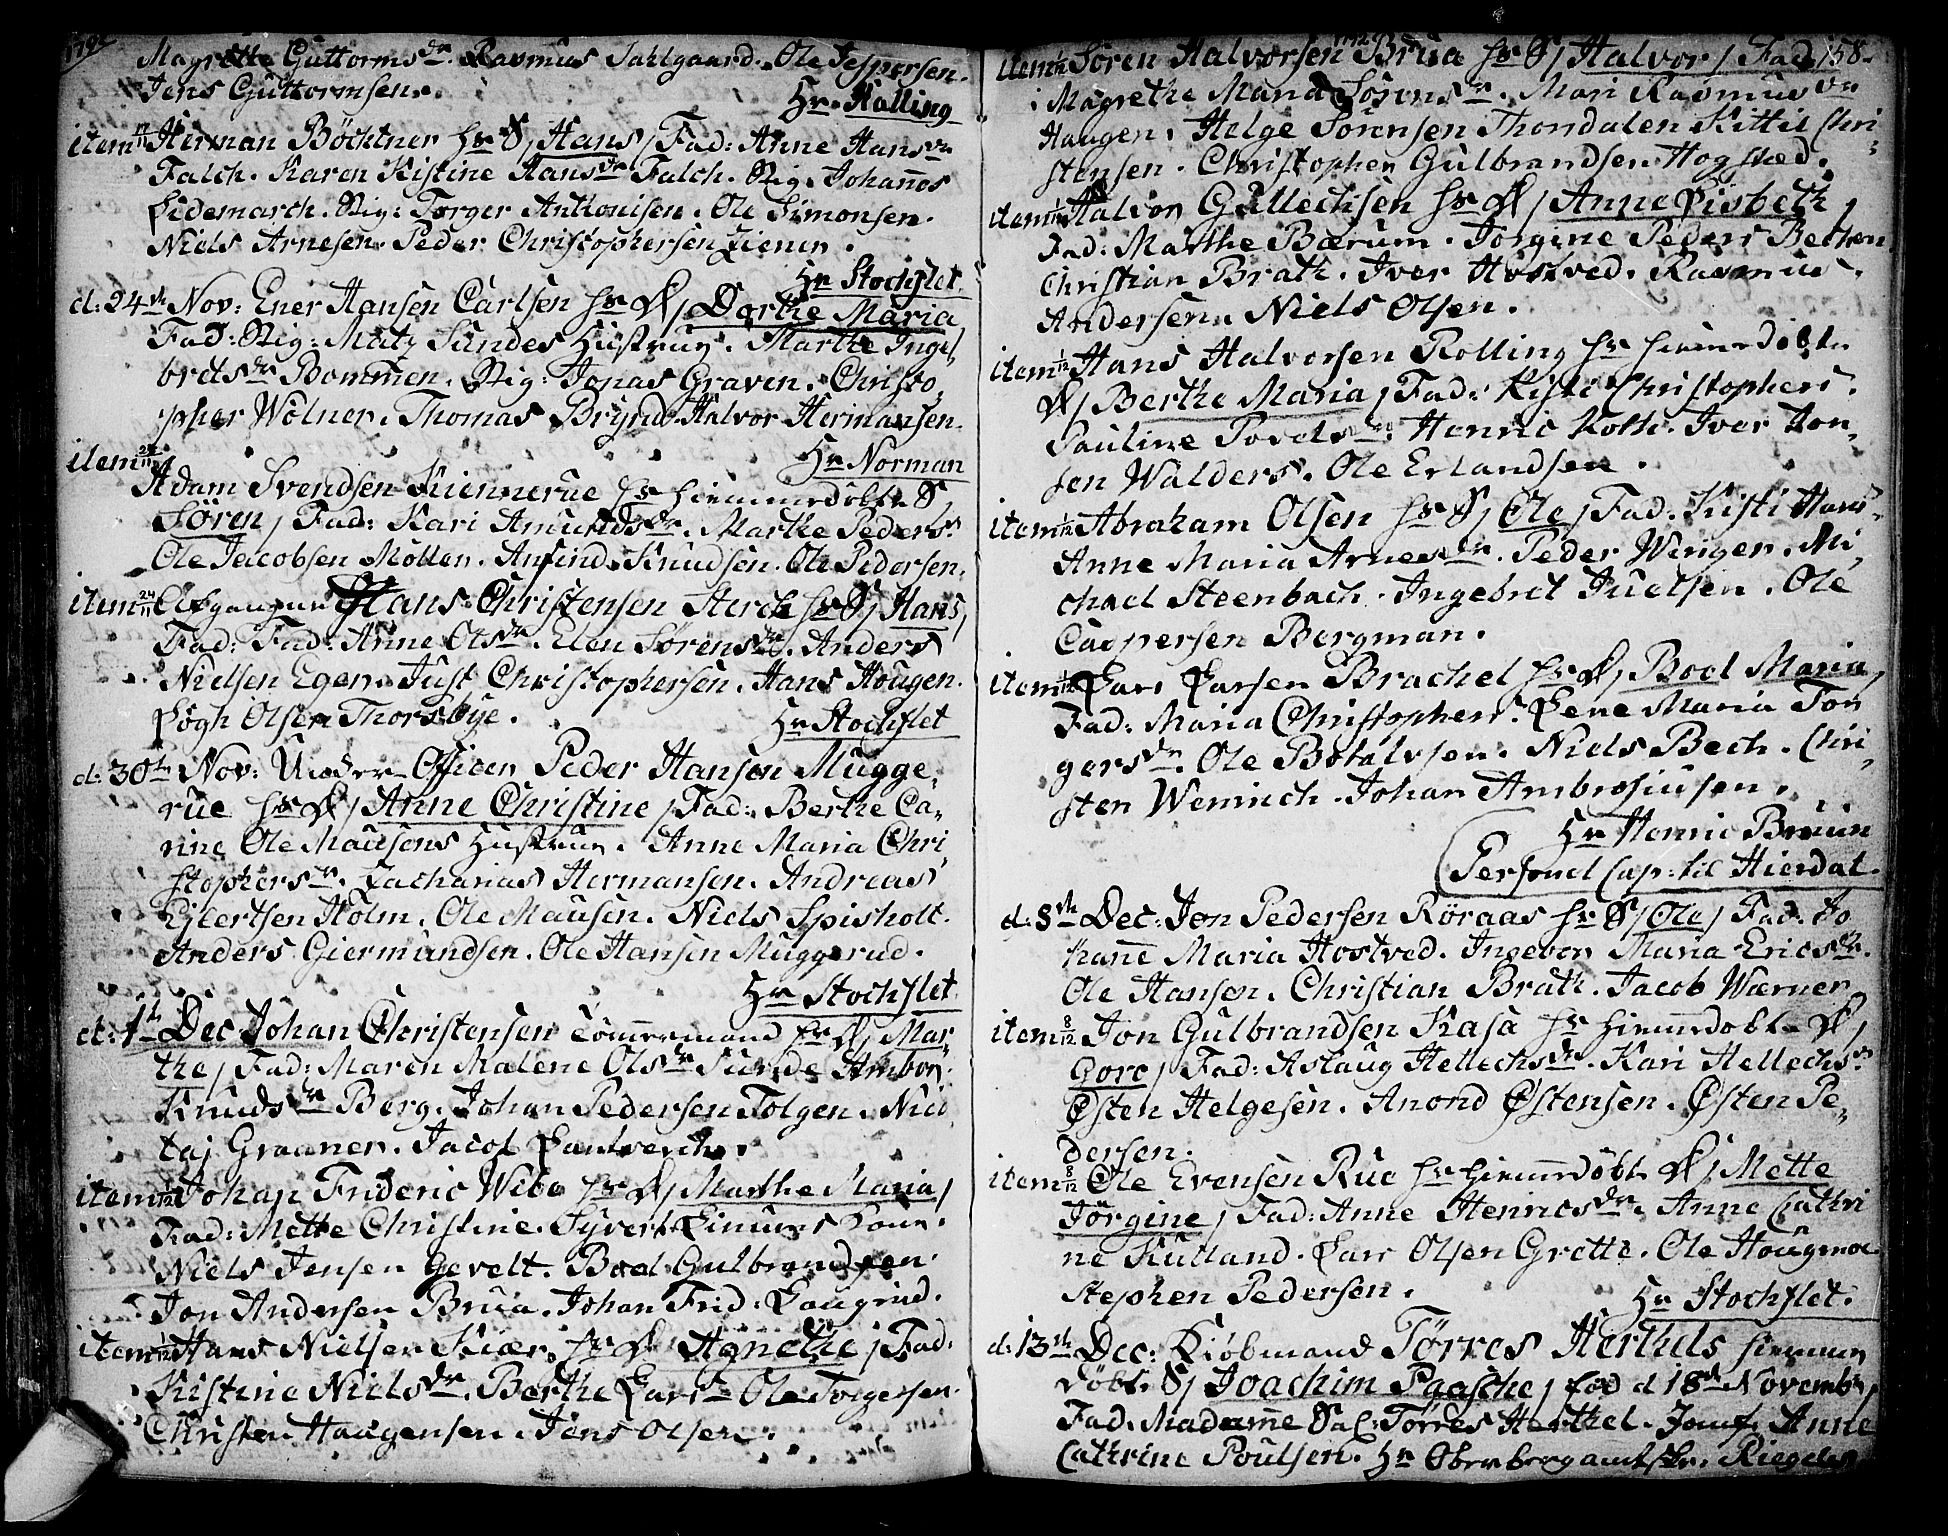 Magrethe Guttorms dr. Rasmus Dahlgaard. Ole Jespersen.
Jens Guttormsen.
Hr. Halling
item 17/11 Herman Böchtner hr S/ Hans / Fad: Anne Hans dr
Falch. Karen Kistine Hans dr Falch. Sig. Johannes
Lidemarch. Sig: Torger Anthonisen. Ole Simonsen.
Niels Arnesen. Peder Christophersen Ziener.
Hr Stochflet
d: 24de Nov: Ener Hansen Carlsen hr D/ Dorthe Maria
Fad: Sig: Matz Sundes Hustrue. Marthe Ingel,
brets dr Bommen. Sig: Jonas Graven. Christo,
pher Wölner. Thomas Brynd. Halvor Hermansen.
Hr Norman
item 24/11
Adam Svendsen Kiennerue hr hiemmedöbt S.
Sören / Fad: Kari Amunds dr. Marthe Peders dr
Ole Jacobsen Möller. Anfind Knudsen. Ole Pedersen.
item 24/11 Afgangne Hans Christensen Sterch hr S/ Hans/
Fad: Fad: Anne Ols dr. Elen Sörens dr. Anders
Nielsen Eger. Just Christophersen. Hans Hougen.
Lögh Olsen Thorsbye.
Hr Stochflet
d: 30te Nov: Under-Officer Peder Hansen Mugge,
rue hr D/ Anne Christine / Fad: Berthe Ca,
rine Ole Mausens Hustrue. Anne Maria Chri,
stophers dr. Zacharias Hermansen. Andreas
Ejlertsen Holm. Ole Mausen. Niels Spisholt.
Anders Giermundsen. Ole Hansen Muggerud.
Hr Stochflet
d: 1te Dec Johan Christensen Tömmermand hr D/ Mar,
the / Fad: Maren Malene Ols dr Sunde Ambor.
Knuds dr Berg. Johan Pedersen Tolgen. Nico
taj Graaner. Jacob Lantverch.
item 1/12 Johan Frideric Wibe hr D/ Marthe Maria /
Fad: Mette Christine. Syvert Kone.
Niels Jensen Gevelt. Boel Gulbrandsen
Jon Andersen Brua. Johan Frid: Laugrud.
item 1/12 Hans Nielsen Kiær hr D/ Agnethe / Fad:
Kistine Niels dr. Berthe Lars dr Ole Torgersen.
Christen Haagensen. Jens Olsen.
158.
item 1/12 Sören Halvorsen Brua hr S/ Halvor / Fad:
Magrethe Maria Sörens dr. Mari Rasmus dr
Haugen. Helge Sörensen Thondalen Kittil Chri,
stensen. Christopher Gulbrandsen Hogstad.
item 1/12 Halvor Gullechsen hr D/ Anne Lisbeth /
Fad: Marthe Bærum. Jörgine Peders Becken
Christian Brath. Iver Hostved. Rasmus
Andersen. Niels Olsen.
item 1/12 Hans Halvorsen Rolling hr hiemmedöbt
D/ Berthe Maria / Fad: Kisti Christophers.
Pauline Povels dr. Henric Koth. Iver Jon,
sen Walders. Ole Erlandsen.
item 1/12 Abraham Olsen hr S/ Ole / Fad: Kisti Hans
Anne Maria Arnes dr. Peder Wenger. Mi,
chael Steenbach. Ingebret Juelsen. Ole
Caspersen Bergman.
item 1/12 Lars Larsen Brachel hr D/ Boel Maria /
Fad: Maria Christophers. Lene Maria Tor
gers dr. Ole Botolvsen. Niels Bech. Chri,
sten Wennich. Johan Ambrosiusen.
Hr Henric Bruun
Personel Cap: til Hierdal.
d: 8de Dec: Jon Pedersen Röraas hr S/ Ole / Fad: Jo
hanne Maria Hostved. Ingebor Maria Erics dr.
Ole Hansen. Christian Brath. Jacob Wærner
item 8/12 Jon Gulbrandsen Kasa hr hiemmedöbt D/
Goro / Fad: Astaug Hellechs dr. Kari Hellechs dr
Østen Helgesen. Anond Østensen. Østen Pe,
dersen.
item 8/12 Ole Evensen Rue hr hiemmedöbt D/ Mette
Jörgine / Fad: Anne Henrics dr. Anne Cathri
ne Kulland. Lars Olsen Grette. Ole Hougmoe
Stephen Pedersen.
Hr Stochflet.
d: 13de Dec: Kiöbmand Törres Herthels hiemme
döbt S/ Joachim Paasche / Fød d 18de Novembr /
Fad: Madame Sal: Törres Herthel. Jomf. Anne
Cathrine Poulsen. Hr Oberbergamtskr. Riegels